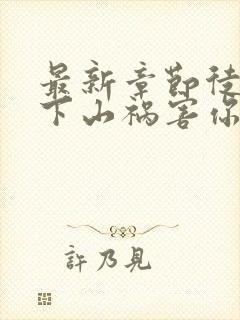 最新章節徒
下山禍害你
許乃見